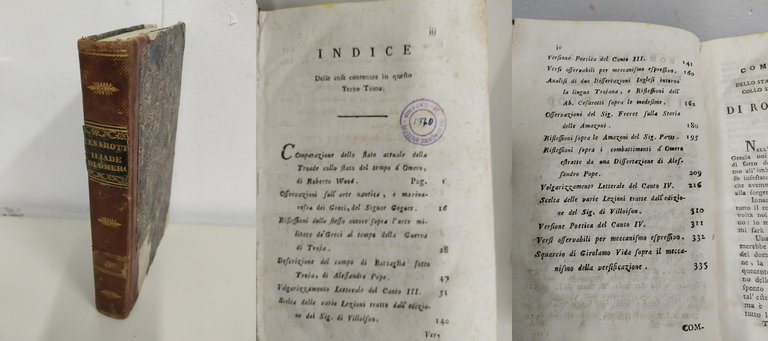 CESAROTTI
ILIADE
DI OMERO
iij
INDICE
Delle cose contenute in questo
Terzo Tomo.
1970
Comparazione dello stato attuale della
Troade collo stato del tempo d'Omero,
di Roberto Wood. Pag. 1
Osservazioni sull'arte nautica, e marina-
resca dei Greci, del Signor Goguet. 16
Riflessioni dello stesso autore sopra l'arte mi-
litare de' Greci al tempo della Guerra
di Troja. 28
Descrizione del campo di Battaglia sotto
Troja, di Alessandro Pope. 49
Volgarizzamento Letterale del Canto III. 51
Scelta delle varie Lezioni tratte dall'edizio-
ne del Sig. di Villoison. 140
Vers
iv
Versione Poetica del Canto III. 141
Versi osservabili per meccanismo espressivo. 160
Analisi di due Dissertazioni Inglesi intorno
la lingua Trojana, e Riflessioni dell'
Ab. Cesarotti sopra le medesime. 162
Osservazioni del Sig. Freret sulla Storia
delle Amazoni. 180
Riflessioni sopra le Amazoni del Sig. Pauw. 195
Riflessioni sopra i combattimenti d'Omero
estratte da una Dissertazione di Ales-
sandro Pope. 209
Volgarizzamento Letterale del Canto IV. 216
Scelta delle varie Lezioni tratte dall'edizio-
ne del Sig. di Villoison. 310
Versione Poetica del Canto IV. 311
Versi osservabili per meccanismo espressivo. 332
Squarcio di Girolamo Vida sopra il mecca-
nismo della versificazione. 335
COM-
COM
DELLO STA
COLLO S
DI RO
NELL
Grecia nol